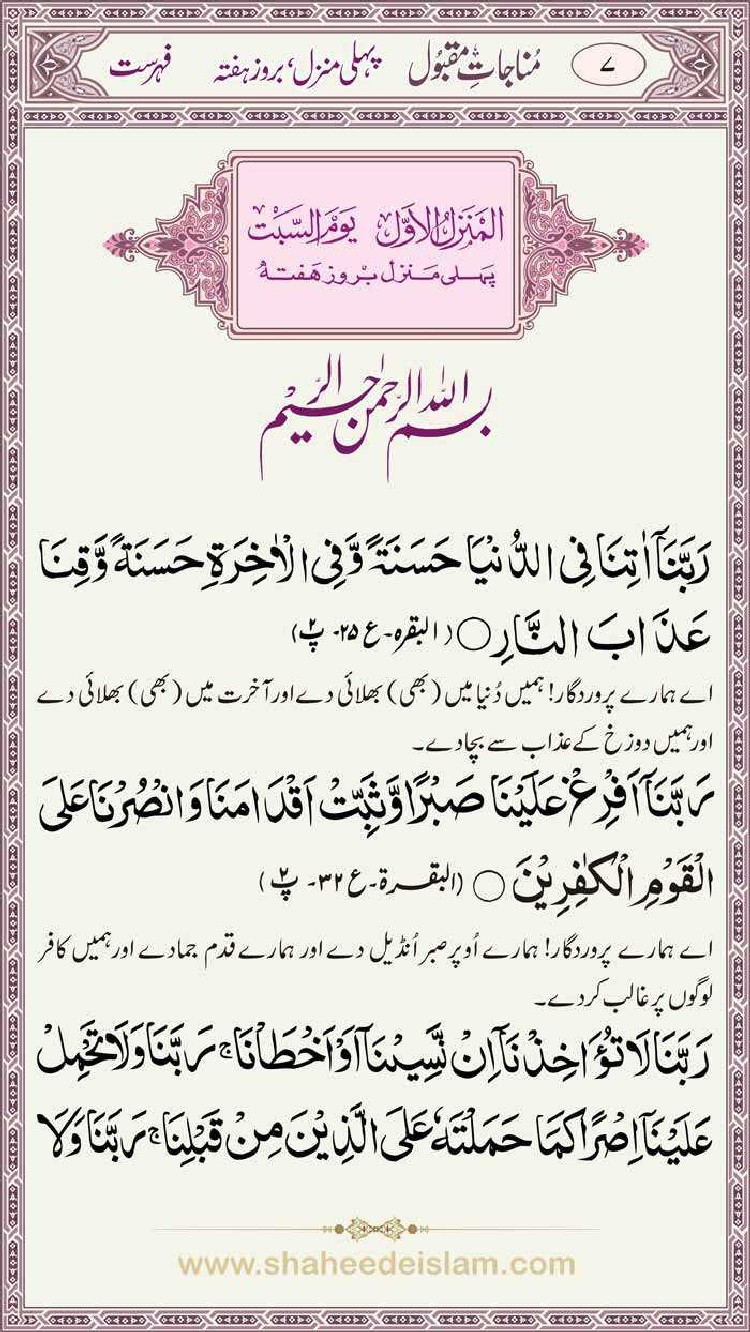 ۷ مُناجاتِ مقبُول پہلی منزل، بروز ہفتہ فہرست
المَنزلُ الاوّل يومَ السَّبت
پہلی منزل بروز ہفتہ
بسم اللہ الرحمٰن الرحیم
رَبَّنَآ اٰتِنَا فِی الدُّنْیَا حَسَنَۃً وَّ فِی الْاٰخِرَۃِ حَسَنَۃً وَّ قِنَا
عَذَابَ النَّارِ○ (البقرہ۔ ع ۲۵۔ پ۲)
اے ہمارے پروردگار! ہمیں دُنیا میں (بھی) بھلائی دے اور آخرت میں (بھی) بھلائی دے
اور ہمیں دوزخ کے عذاب سے بچادے۔
رَبَّنَآ اَفْرِغْ عَلَیْنَا صَبْرًا وَّ ثَبِّتْ اَقْدَامَنَا وَانْصُرْنَا عَلَی
الْقَوْمِ الْکٰفِرِیْنَ ○ (البقرۃ۔ ع ۳۲۔ پ۲)
اے ہمارے پروردگار! ہمارے اُوپر صبر اُنڈیل دے اور ہمارے قدم جمادے اور ہمیں کافر
لوگوں پر غالب کردے۔
رَبَّنَا لَا تُؤَاخِذْنَآ اِنْ نَّسِیْنَآ اَوْ اَخْطَاْنَا ۚ رَبَّنَا وَلَا تَحْمِلْ
عَلَیْنَآ اِصْرًا کَمَا حَمَلْتَہٗ عَلَی الَّذِیْنَ مِنْ قَبْلِنَا ۚ رَبَّنَا وَلَا
www.shaheedeislam.com